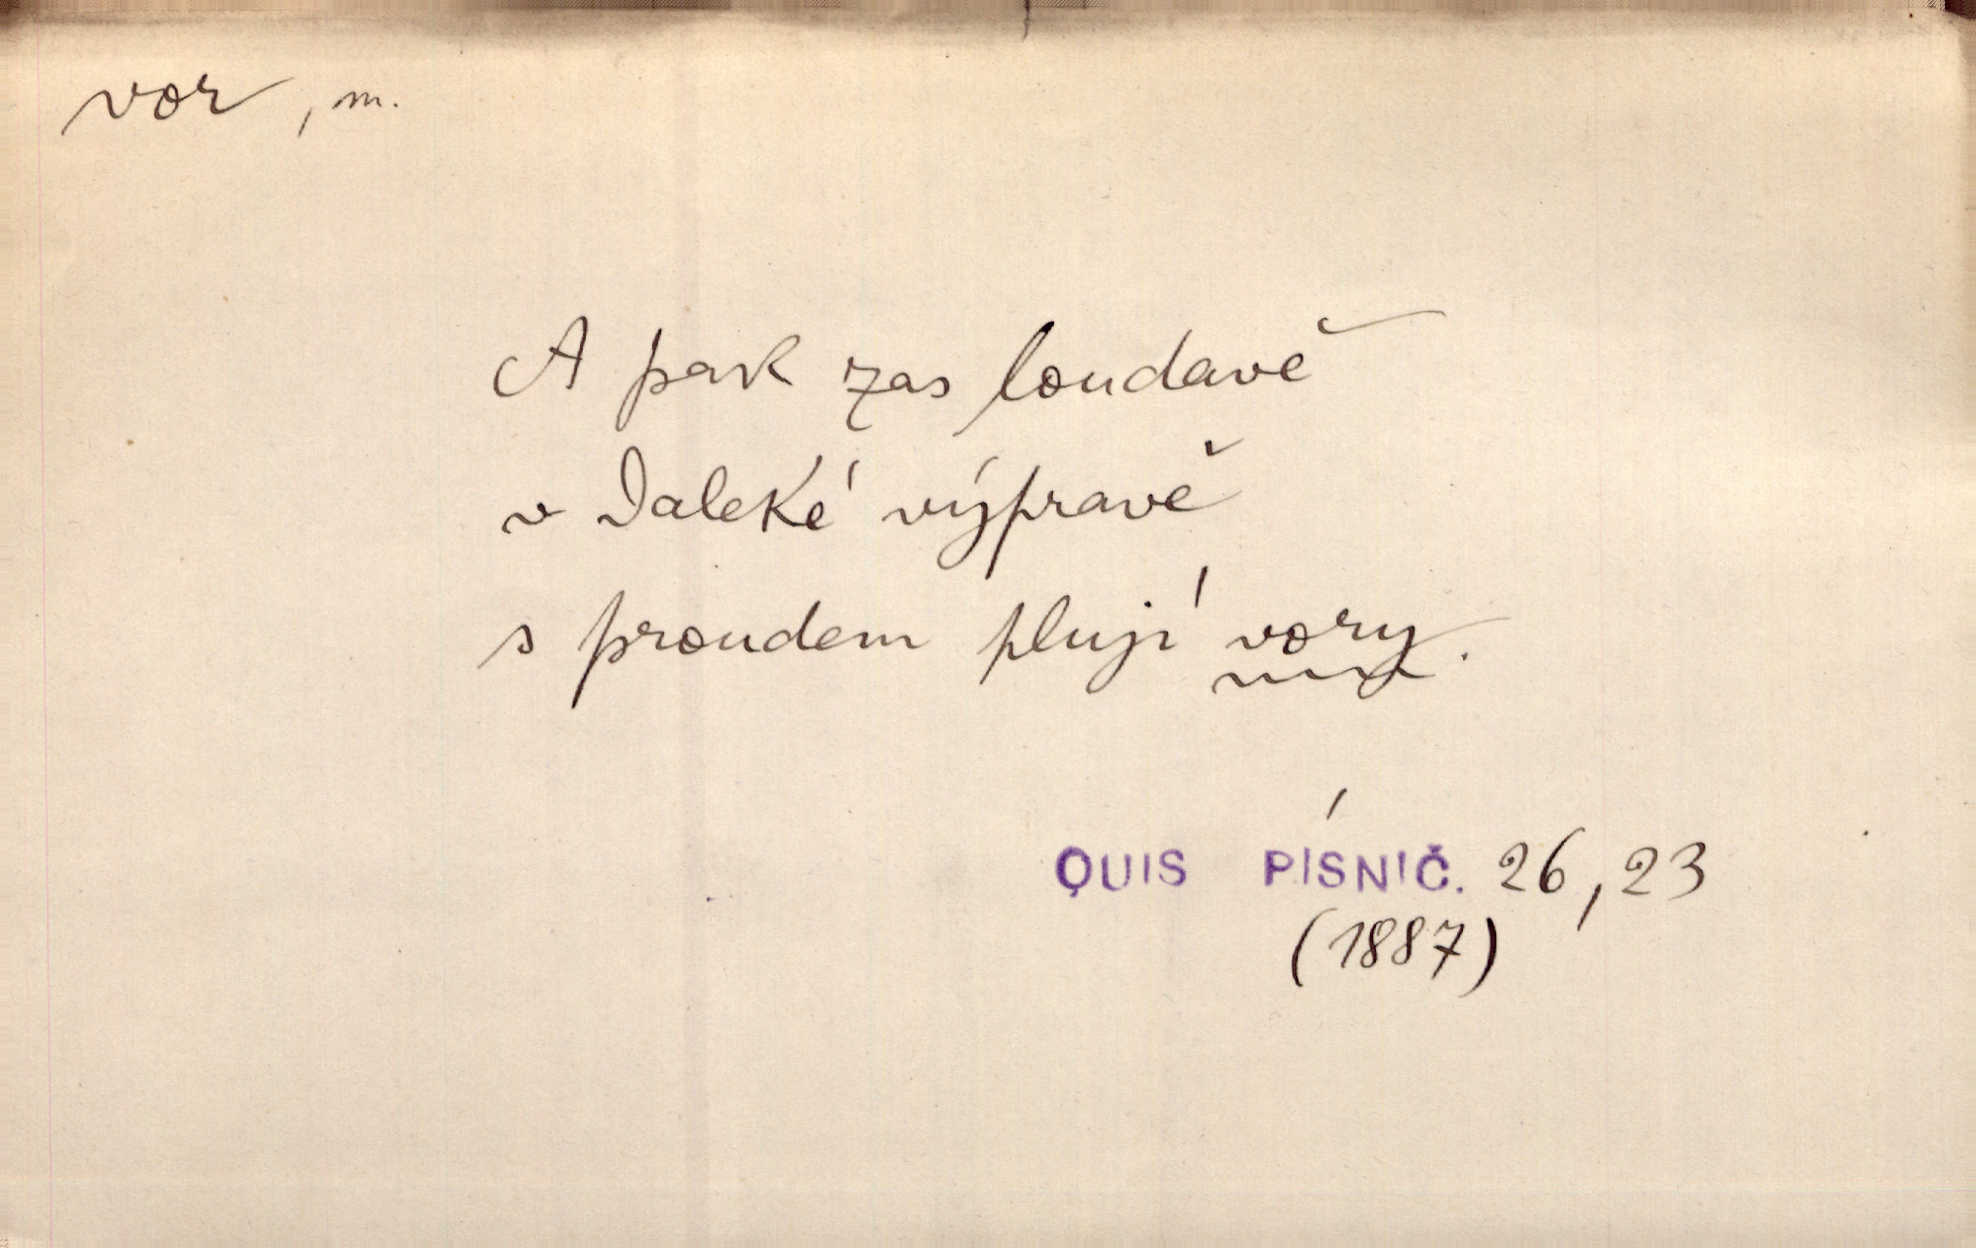 vor, m.
A pak zas loudavě
v daleké výpravě
s proudem plují vory.
QUIS PÍSNIČ. 26, 23
(1887)